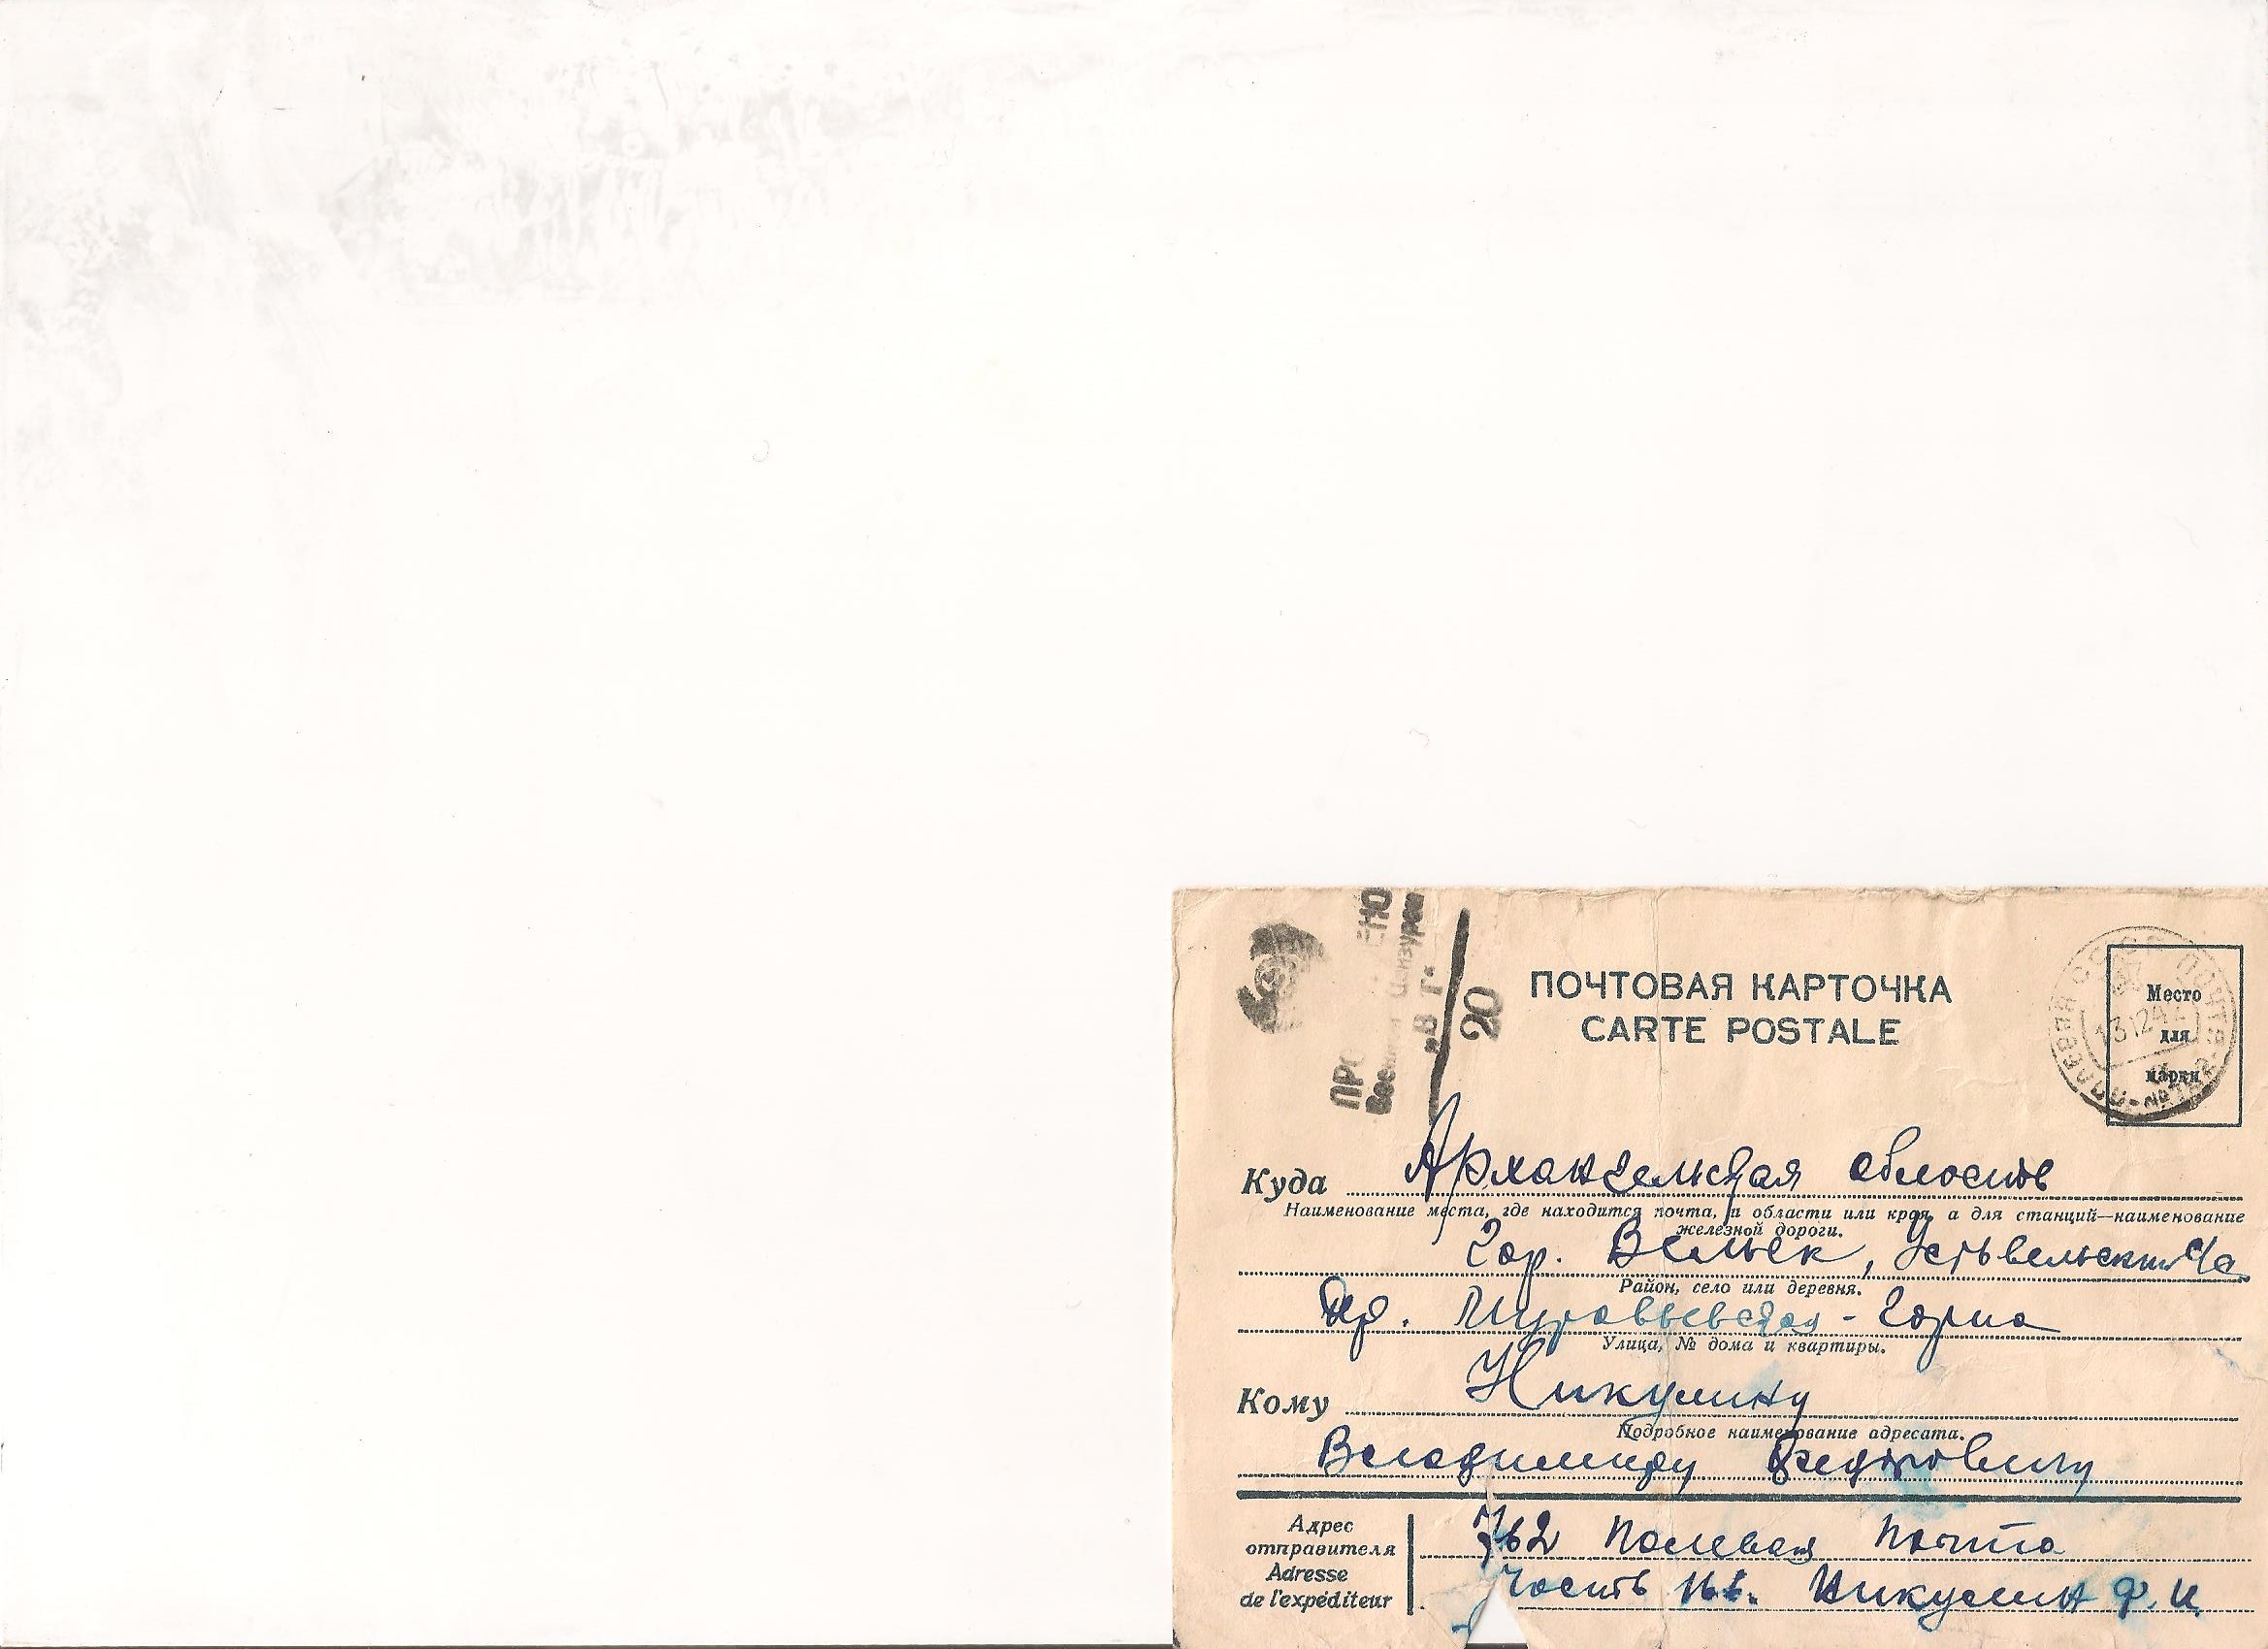 ПОЧТОВАЯ КАРТОЧКА
CARTE POSTALE
Место
для
марки
20
„В Г“
Куда Архангельская область
Наименование места, где находится почта, и области или края, а для станций—наименование
железной дороги.
гор. Вельск, Устьвельский с/с
Район, село или деревня.
Др. Муравьевская - Горка
Улица, № дома и квартиры.
Кому Никулину
Подробное наименование адресата.
Владимиру Федоровичу
Адрес
отправителя
Adresse
de l'expéditeur
762 Полевая почта
часть Никулин Ф. И.